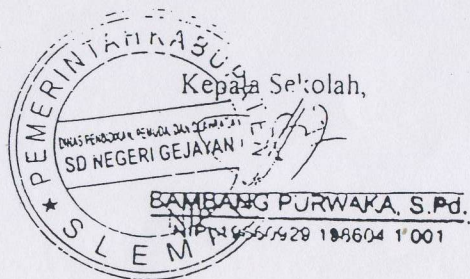 Kepala Sekolah,
PEMERINTAH KABUPATEN
DINAS PENDIDIKAN, PEMUDA DAN OLAHRAGA
SD NEGERI GEJAYAN
★ SLEMAN
BAMBANG PURWAKA, S.Pd.
NIP 19560929 198604 1 001